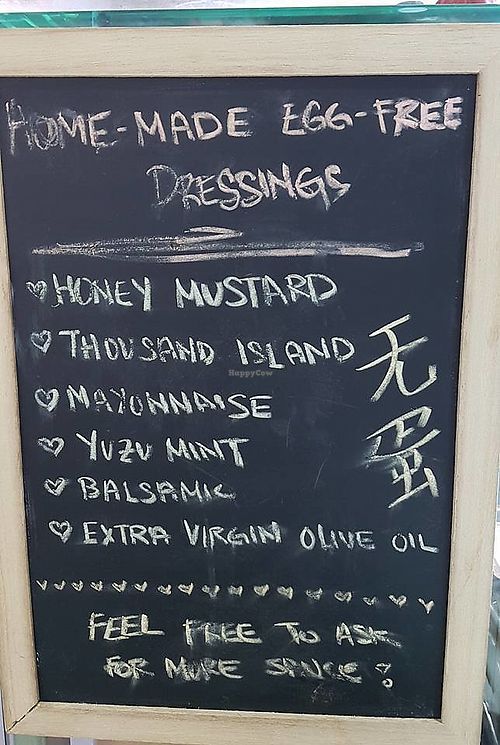 HOME-MADE EGG-FREE
DRESSINGS
HONEY MUSTARD
THOUSAND ISLAND
MAYONNAISE
YUZU MINT
BALSAMIC
EXTRA VIRGIN OLIVE OIL
无
蛋
FEEL FREE TO ASK
FOR MORE SAUCE!
HappyCow